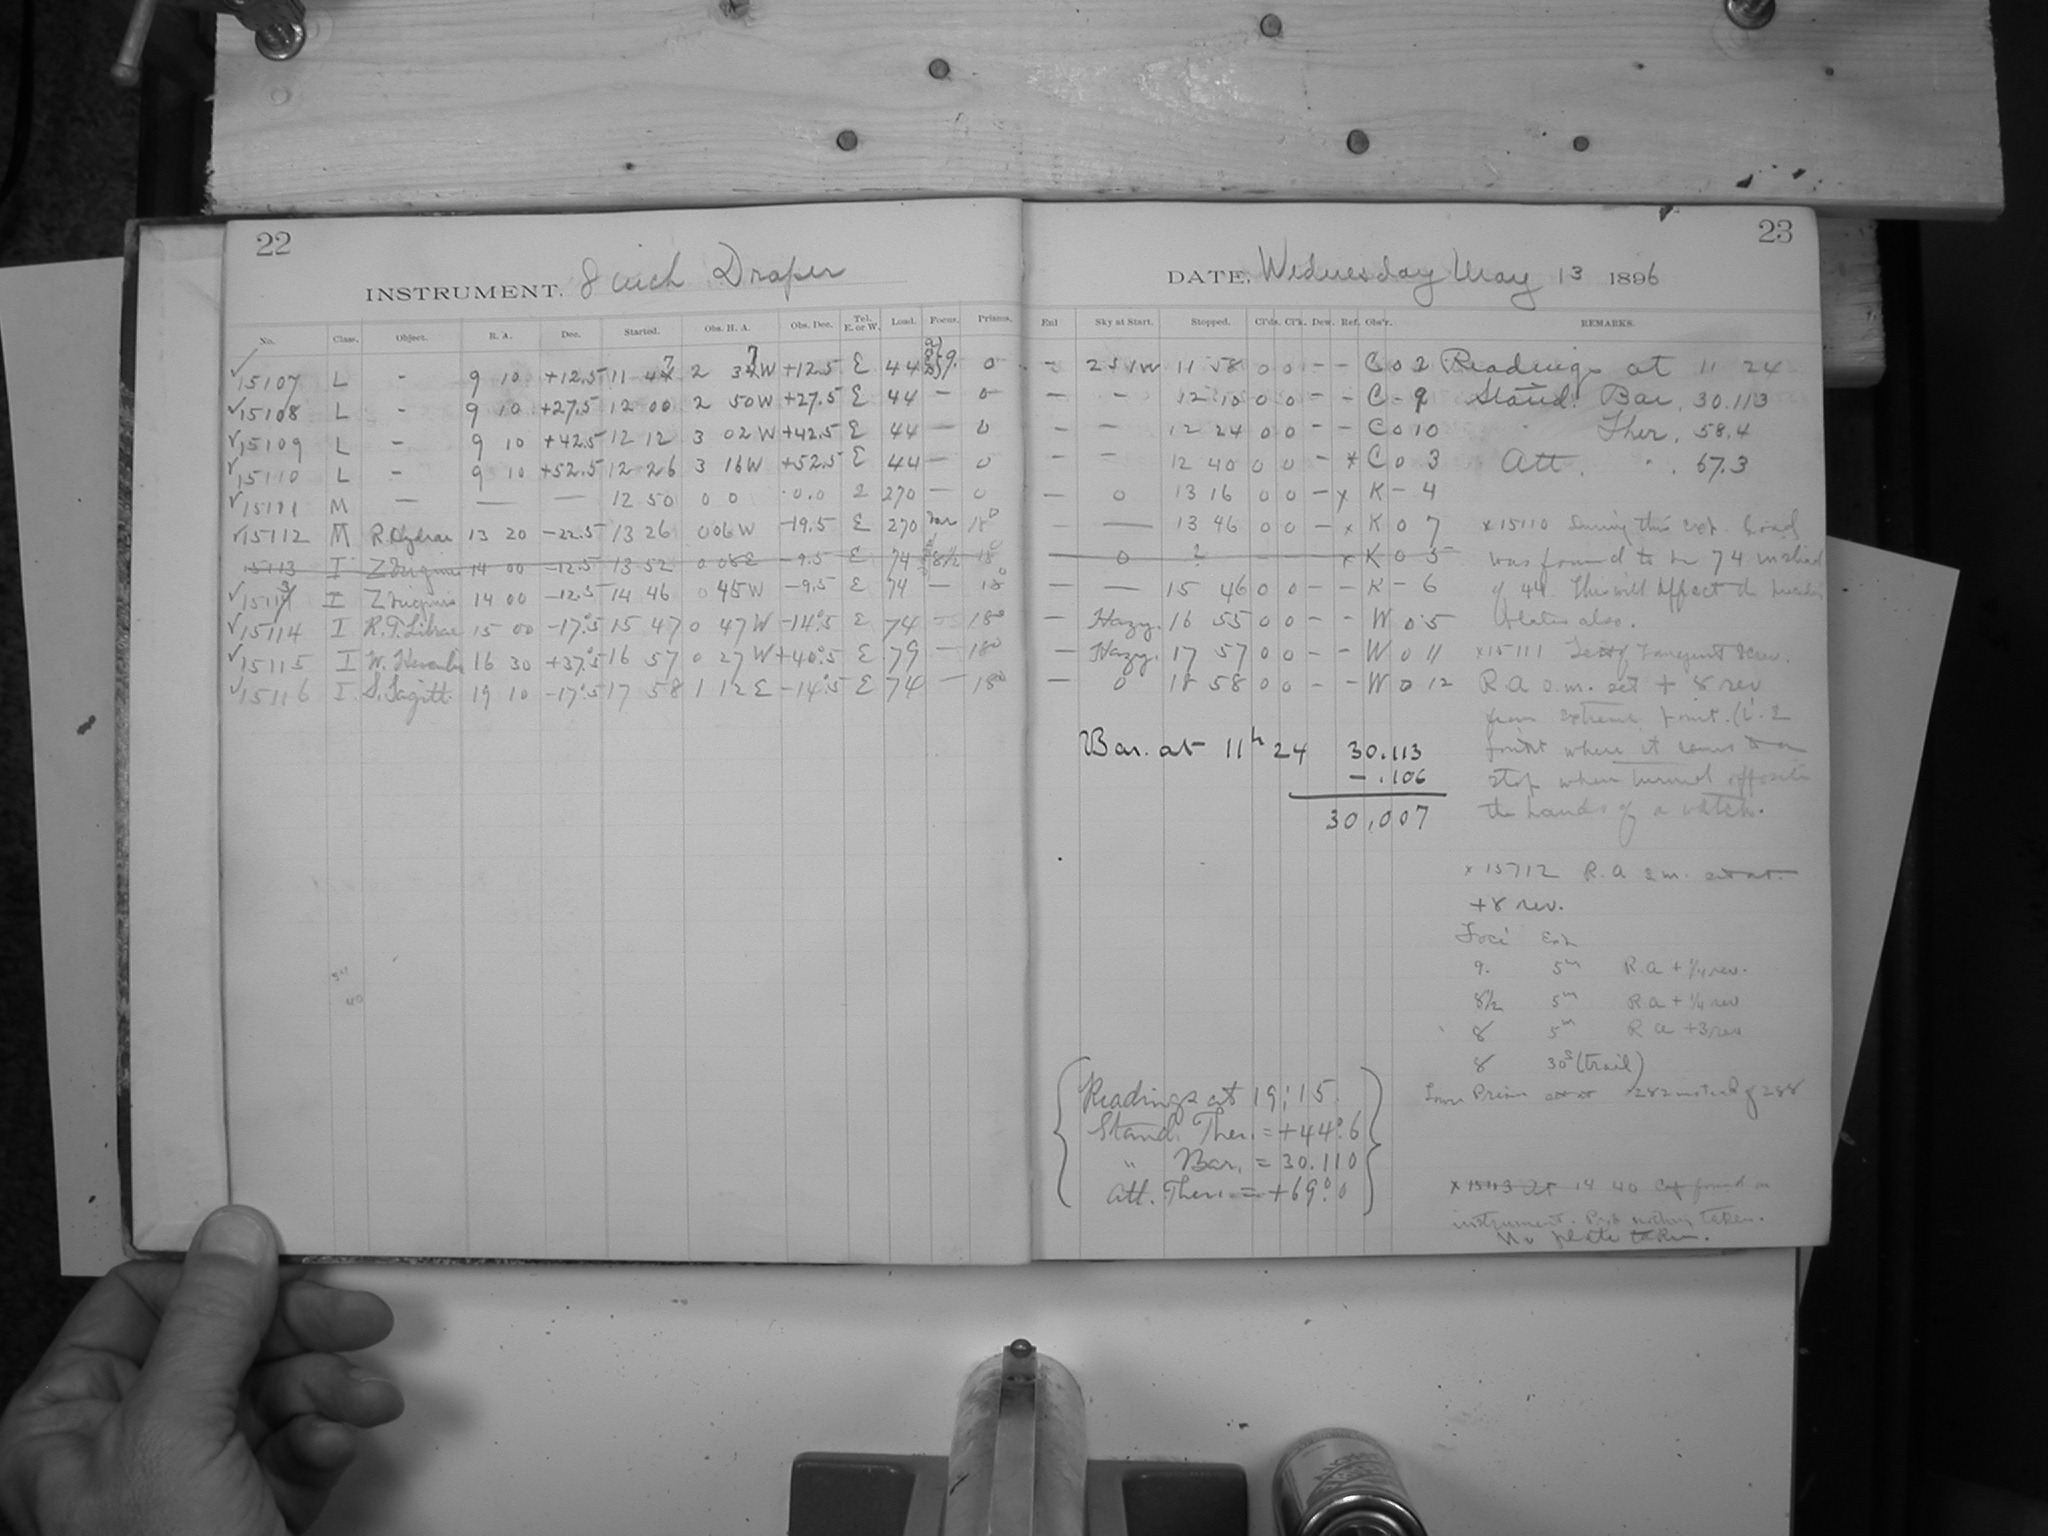 22
INSTRUMENT. 8 inch Draper
No. Class. Object. R. A. Dec. Started. Obs. H. A. Obs. Dec. Tel. E. or W. Load. Focus. Prisms.
15107 L - 9 10 +12.5 11 47 2 37 W +12.5 E 44 9. 0
15108 L - 9 10 +27.5 12 00 2 50 W +27.5 E 44 - 0
15109 L - 9 10 +42.5 12 12 3 02 W +42.5 E 44 - 0
15110 L - 9 10 +52.5 12 26 3 16 W +52.5 E 44 - 0
15111 M - - - 12 50 0 0 0.0 E 270 - 0
15112 M R. Hydrae 13 20 -22.5 13 26 0 06 W -19.5 E 270 var 18°
15113 I Z Virginis 14 00 -12.5 13 52 0 08 E -9.5 E 74 8½ 18°
15113 I Z Virginis 14 00 -12.5 14 46 0 45 W -9.5 E 74 - 18°
15114 I R.T. Librae 15 00 -17°.5 15 47 0 47 W -14°.5 E 74 - 18°
15115 I W. Herculis 16 30 +37°.5 16 57 0 27 W +40°.5 E 79 - 18°
15116 I S. Sagitt. 19 10 -17°.5 17 58 1 12 E -14°.5 E 74 - 18°
23
DATE, Wednesday May 13 1896
Enl Sky at Start. Stopped. Cl'ds. Cl'k. Dew. Ref. Obs'r. REMARKS.
- 2 S 1 W 11 58 0 0 - - C 0 2 Readings at 11 24
- - 12 10 0 0 - - C - 9 Stand. Bar. 30.113
- - 12 24 0 0 - - C 0 10 Ther. 58.4
- - 12 40 0 0 - x C 0 3 Att. " . 67.3
- 0 13 16 0 0 - x K - 4
- - 13 46 0 0 - x K 0 7 x 15110 During this exp. Load
- 0 ? - - - x K 0 5 was found to be 74 instead
- - 15 46 0 0 - - K - 6 of 44. This will affect the
- Hazy. 16 55 0 0 - - W 0 5 plates also.
- Hazy. 17 57 0 0 - - W 0 11 x 15111 Test of Tangent Screw.
- 0 18 58 0 0 - - W 0 12 R.A s.m. set + 8 rev
from extreme point. (i.e
point where it comes to a
stop when turned opposite
the hands of a watch.
Bar. at 11h 24 30.113
- .106
30.007
x 15712 R.A s.m. set at
+8 rev.
Foci Exp
9. 5m R.A + ¼ rev.
8½ 5m R.A + ¼ rev
8 5m R A +3 rev
8 30s (trail)
Lower Prism set at 282 instead of 288
Readings at 19:15.
Stand. Ther. = +44°.6
" Bar. = 30.110
Att. Ther. = +69°.0
x 15113 At 14 40 Cap found on
instrument. Prob nothing taken.
No plate taken.